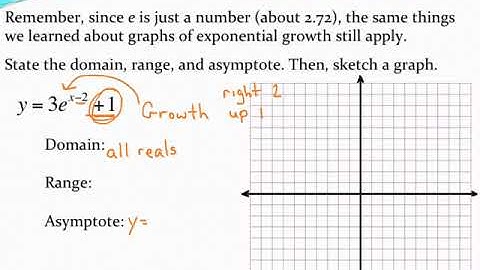 Remember, since e is just a number (about 2.72), the same things
we learned about graphs of exponential growth still apply.
State the domain, range, and asymptote. Then, sketch a graph.
y = 3e^(x−2) + 1 Growth right 2
up 1
Domain: all reals
Range:
Asymptote: y=